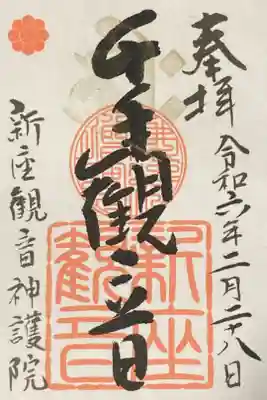 奉拝
令和六年二月二十八日
千手観音
新座観音神護院
新座観音